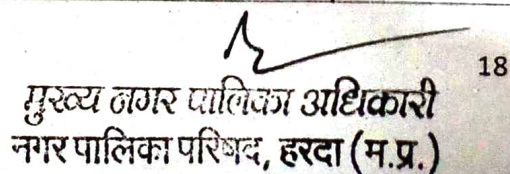 18
मुख्य नगर पालिका अधिकारी
नगर पालिका परिषद, हरदा (म.प्र.)